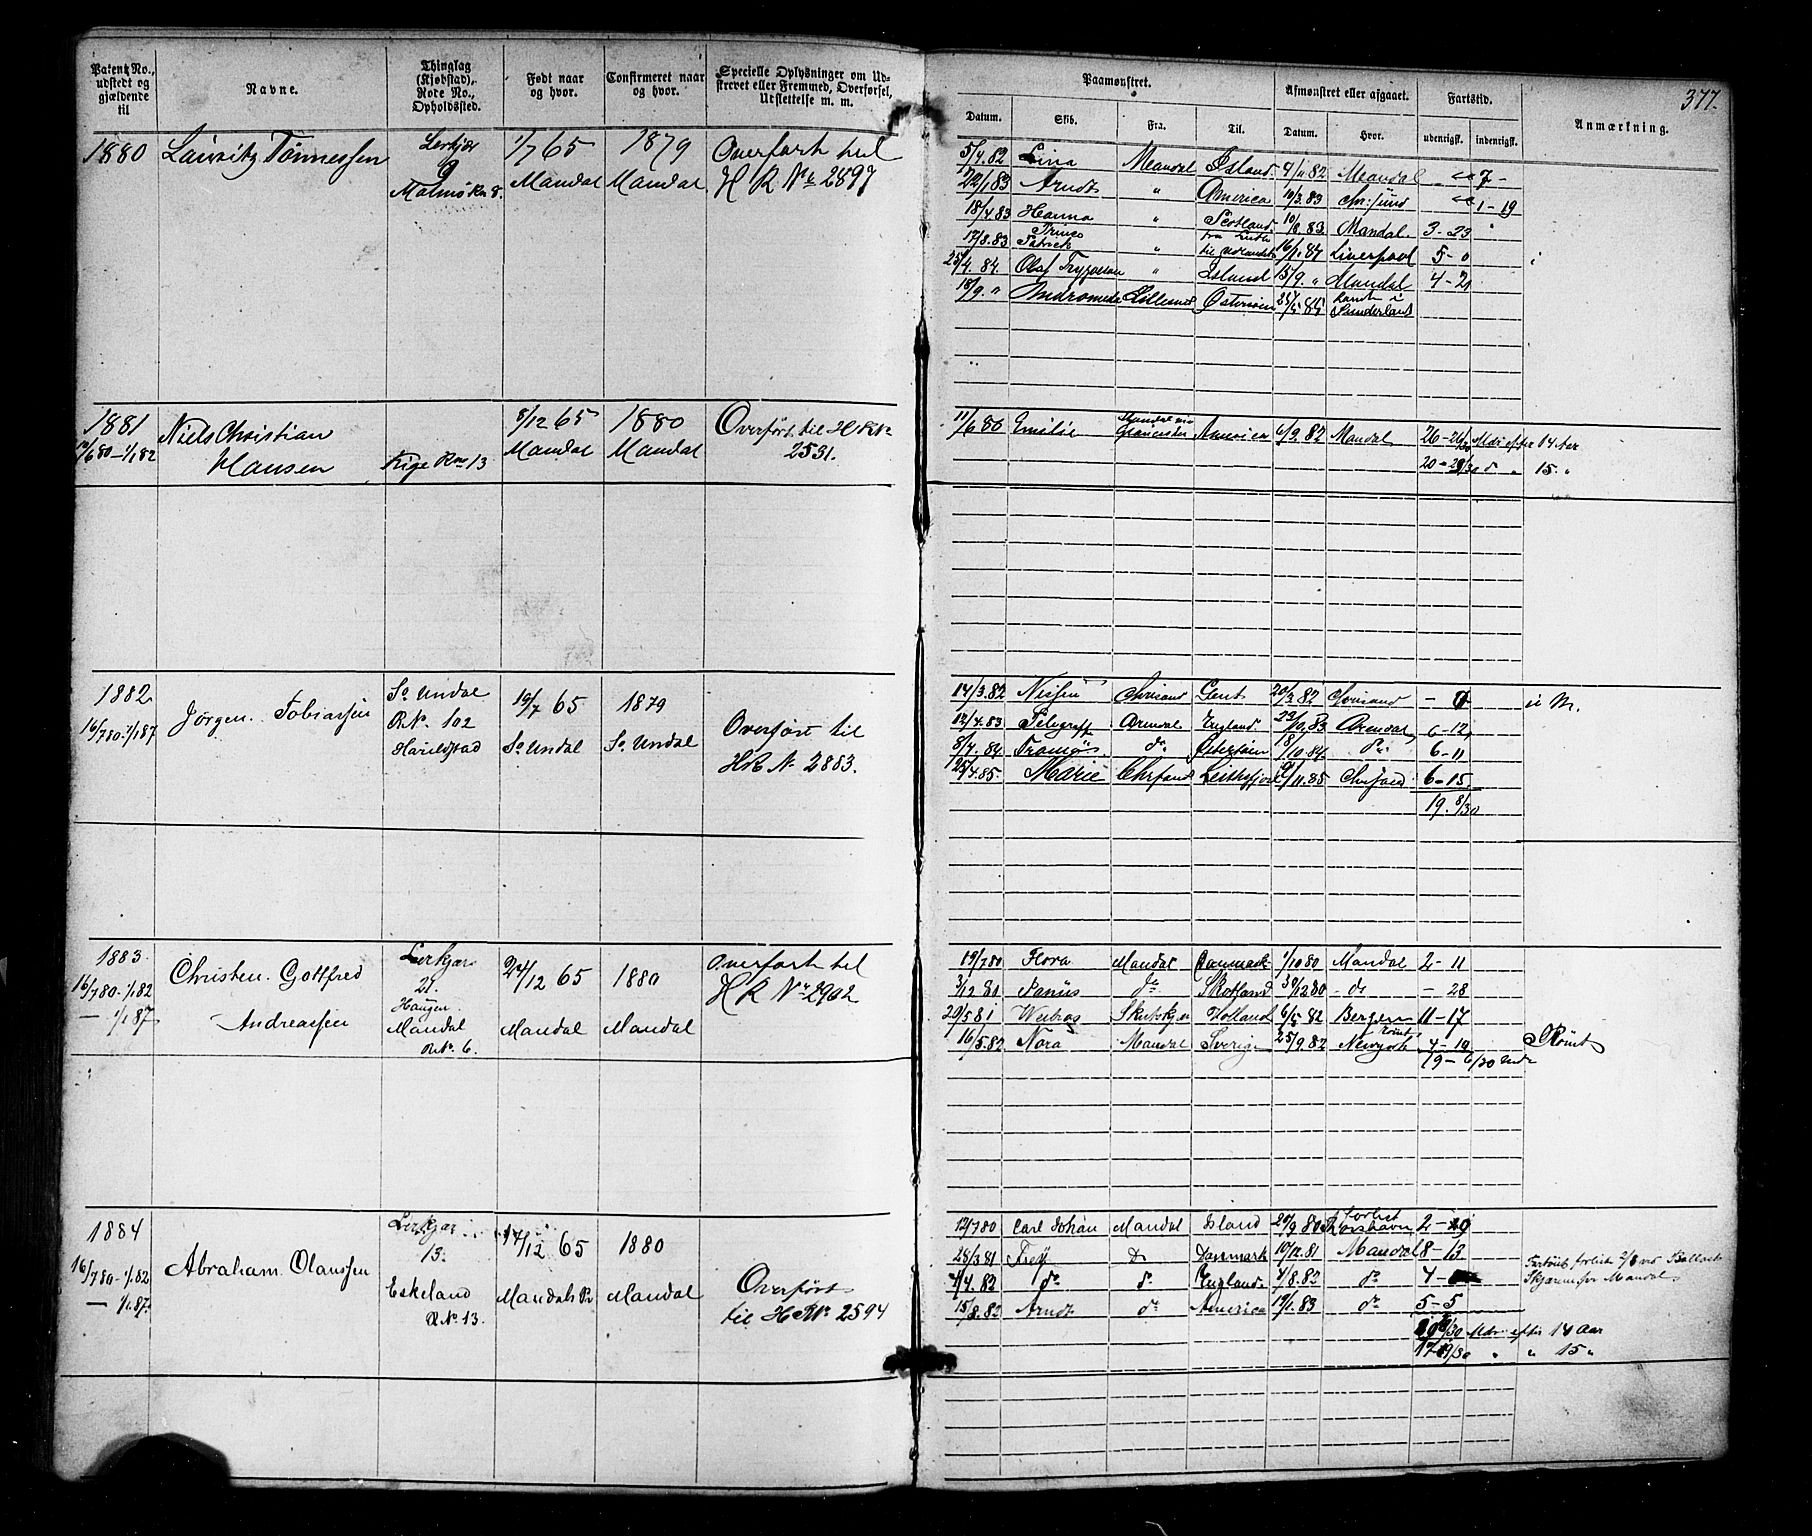 Patent No., udstedt og gjældende til
Navne.
Thinglag (Kjøbstad), Rode No., Opholdssted.
Født naar og hvor.
Confirmeret naar og hvor.
Specielle Oplysninger om Udskrevet eller Fremmed, Overførsel, Udslettelse m. m.
Paamønstret.
Afmønstret eller afgaaet.
Fartstid.
Anmærkning.
377.
Datum.
Skib.
Fra.
Til.
Datum.
Hvor.
udenrigsk.
indenrigsk.
1880 Lauritz Tönnessen
Lerkjær
9
Malmö R no 8.
1/7 65
Mandal
1879
Mandal
Overfört til
H R No 2597
5/4.82 Lina Mandal Island 9/11 82 Mandal 7 -
22/1 83 Arndt " America 10/3.83 Chr:sund 1-19
18/4.83 Hanna " Scotland 10/8 83 Mandal 3-23
17/8.83 Prince Patrick " 16/1.84 Liverpool 5-0
25/4.84. Olaf Trygvason " Island 15/9. " Mandal 4-21
18/9. " Andromeda Lillesand Østersöen 25/5 85 Rømt i Sunderland
1881
10/6 80-1/1 82
Niels Christian
Hansen
Kige R no 13
8/12 65
Mandal
1880
Mandal
Overført til H R No
2531.
11/6 80 Emilie America 6/9.82 Mandal 26-26/30 Mdr efter 14 Aar
20-29/30 d " 15. "
1882
16/7 80-1/1 87
Jørgen Tobiassen
So Undal
R No. 102
Harildstad
19/7 65
So Undal
1879
So Undal
Overført til
HR No 2883.
14/3.82 Chrisand Gent 20/3 82 Chrisand
i M.
12/4.83 Telegraff Arendal England 22/10 83 Arendal 6-12
8/4.84 Tromøs do Østersøen 18/10.84 do 6-11
25/4.85. Marie Chrsand 9/11.85 Chrsand 6-15
19. 8/30
1883.
16/7 80-1/1 82
— 1/1 87
Christen Gottfred
Andreassen
Lerkjær
21.
Haugen.
Mandal
R No. 6.
24/12 65
Mandal
1880
Mandal
Overfört til
H R No 2902
19/7 80 Flora Mandal Danmark 1/10 80 Mandal 2-11
3/12 80 do Skotland 30/12 80 - do - 28
29/5 81 Holland 6/5 82 Bergen 11-17
16/5.82 Nora Mandal Sverige 25/9.82 Rømt Newyork 4-10
Rømt
19- 6/30 Mdr
1884
16/7 80-1/1 82
— 1/1 87.
Abraham Olaussen
Lerkjær
13.
Eskeland
R No. 13.
17/12 65
Mandals Pr
1880
Mandal
Overført
til H R No 2594
12/7 80 Carl Johan Mandal Island 29/9 80 Forlist Thorshavn 2-19
28/3 81 Freÿ do Danmark 10/12 81 Mandal 8-13
Fartöiet forlist
4/4.82 do do England 4/8.82 do 4-
Skjærene for Mandal
15/8.82 Arndt do America 19/1.83 do 5-5
/30 Mdr. efter 14 Aar
17-19/30 " " 15 "